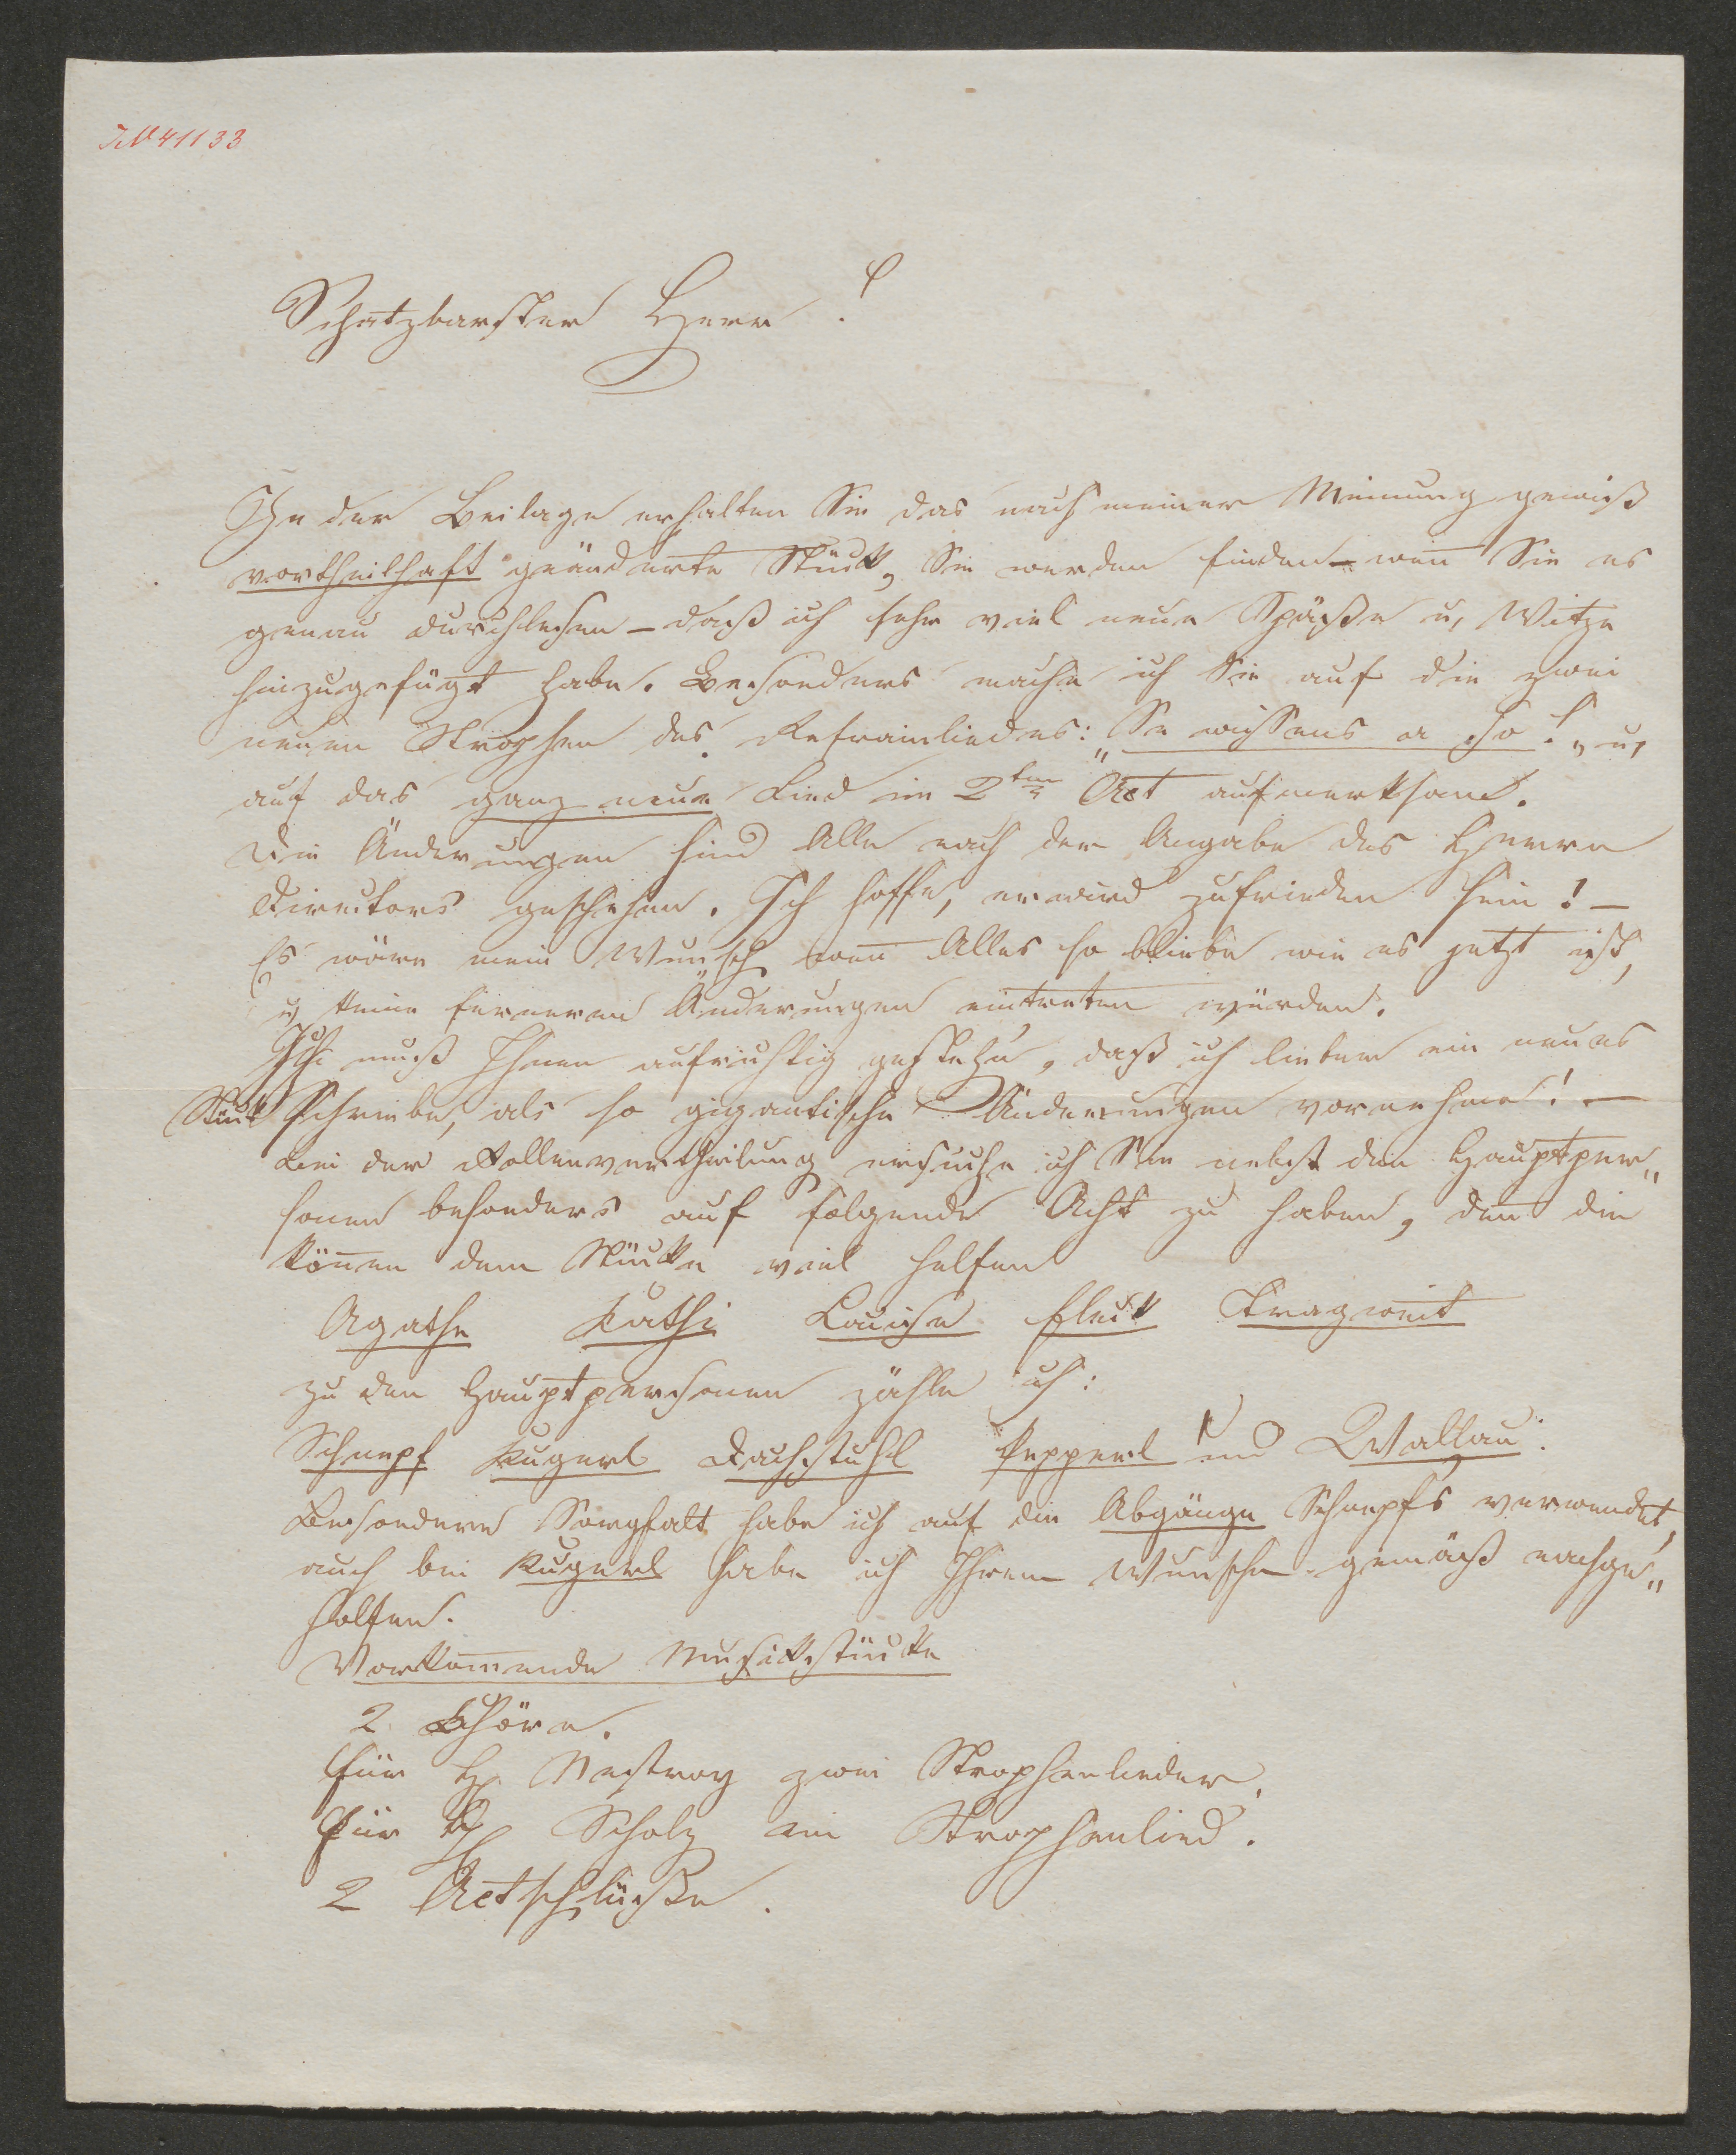 IN 41133
Schatzbarster Herr!
In der Beilage erhalten Sie das nach meiner Meinung gewiß
vortheilhaft geänderte Stück, Sie werden finden – weñ Sie es
genau durchlesen – daß ich sehr viel neue Späße u, Witze
hinzugefügt habe. Besonders mache ich Sie auf die zwei
neuen Strophen des Refrainliedes: „Se wissens a so!„ u,
auf das ganz neue Lied im 2ten Act aufmerksam.
Die Änderungen sind Alle nach der Angabe des Herrn
Directors geschehen. Ich hoffe, er wird zufrieden sein! –
Es wäre mein Wunsch weñ Alles so bliebe wie es jetzt ist,
u, keine ferneren Änderungen eintreten würden.
Ich muß Ihnen aufrichtig gestehn, daß ich lieber ein neues
Stück schreibe, als so gigantische Änderungen vornehme! –
Bei der Rollenvertheilung ersuche ich Sie nebst den Hauptper„
sonen besonders auf folgende Acht zu haben, deñ die
köñen dem Stücke viel helfen
Agathe Kathi Louise Fleck Tragweit
zu den Hauptpersonen zähle ich:
Schnepf Kugerl Dachstuhl Pepperl und Wallau.
Besondere Sorgfalt habe ich auf die Abgänge Schnepfs verwendet,
auch bei Kugerl habe ich Ihrem Wunsche gemäß nachge„
holfen.
Vorkom̃ende Musickstücke
2 Chöre.
Für H. Nestroy zwei Strophenlieder.
Für H. Scholz ein Strophenlied.
2 Actschlüße.